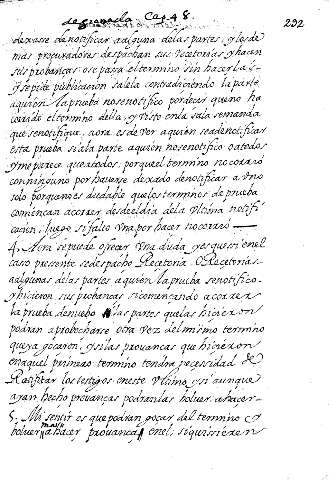 de granada Cap. 48. 292
dexasse de notificar a alguna de las partes, y los de
mas procuradores despachan sus recetorias y hacen
sus probanças: o se passa el termino sin hacerlas
y se pide publicacion sale la contradiciendo la parte
a quien la prueba no se notifico por decir que no ha
corrido el termino della, y visto en la sala se manda
que se notifique, aora es de ver a quien se ade notificar
esta prueba si a la parte a quien no se notifico o a todos
y me parece que a todos: porque el termino no corrio
con ninguno por haverse dexado de notificar a uno
solo porque no es dudable que los terminos de prueba
comiencan a correr desde el dia de la Ultima notifi
cacion, luego si falto Una por hacer no corrio
4. Aora se puede ofrecer Una duda y es que si en el
caso presente se despacho Recetoria, o Recetorias
a algunas de las partes a quien la prueba se notifico
y hicieron sus probanças si comencando a correr
la prueba de nuebo las partes que las hicieron
podran aprobecharse otra Vez del mismo termino
que ya goçaron, y si las provancas que hicieron
en aquel primero termino tendra necessidad de
Ratificar los testigos en este Ultimo, y si aunque
ayan hecho provanças podran las bolver a hacer
5. Mi sentir es que podran goçar del termino y
bolver a hacer mas provança en el, si quissieren